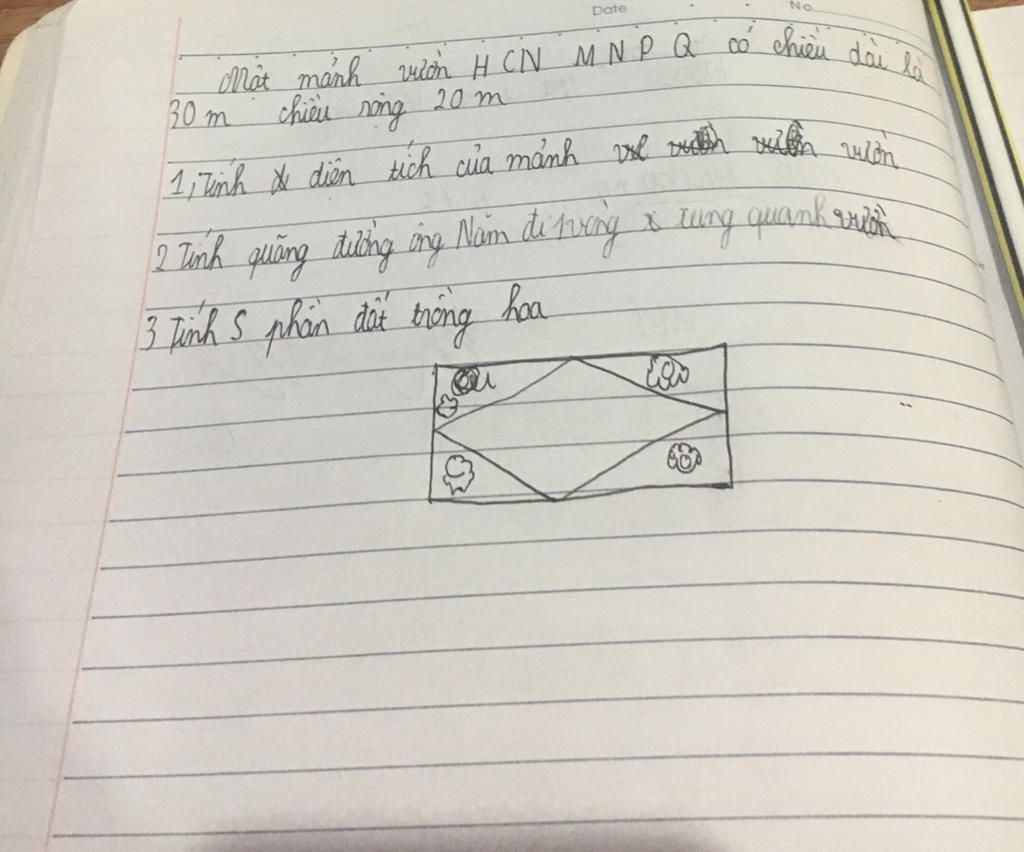 Date No
Một mảnh vườn HCN MNPQ có chiều dài là
30 m chiều rộng 20 m
1, Tính diện tích của mảnh vườn
2 Tính quãng đường ông Năm đi vòng xung quanh vườn
3 Tính S phần đất trồng hoa